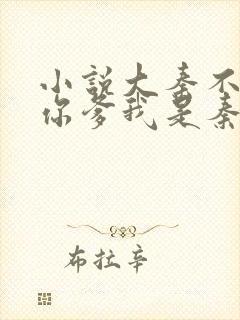 小说大秦不
你爹我是秦
布拉辛